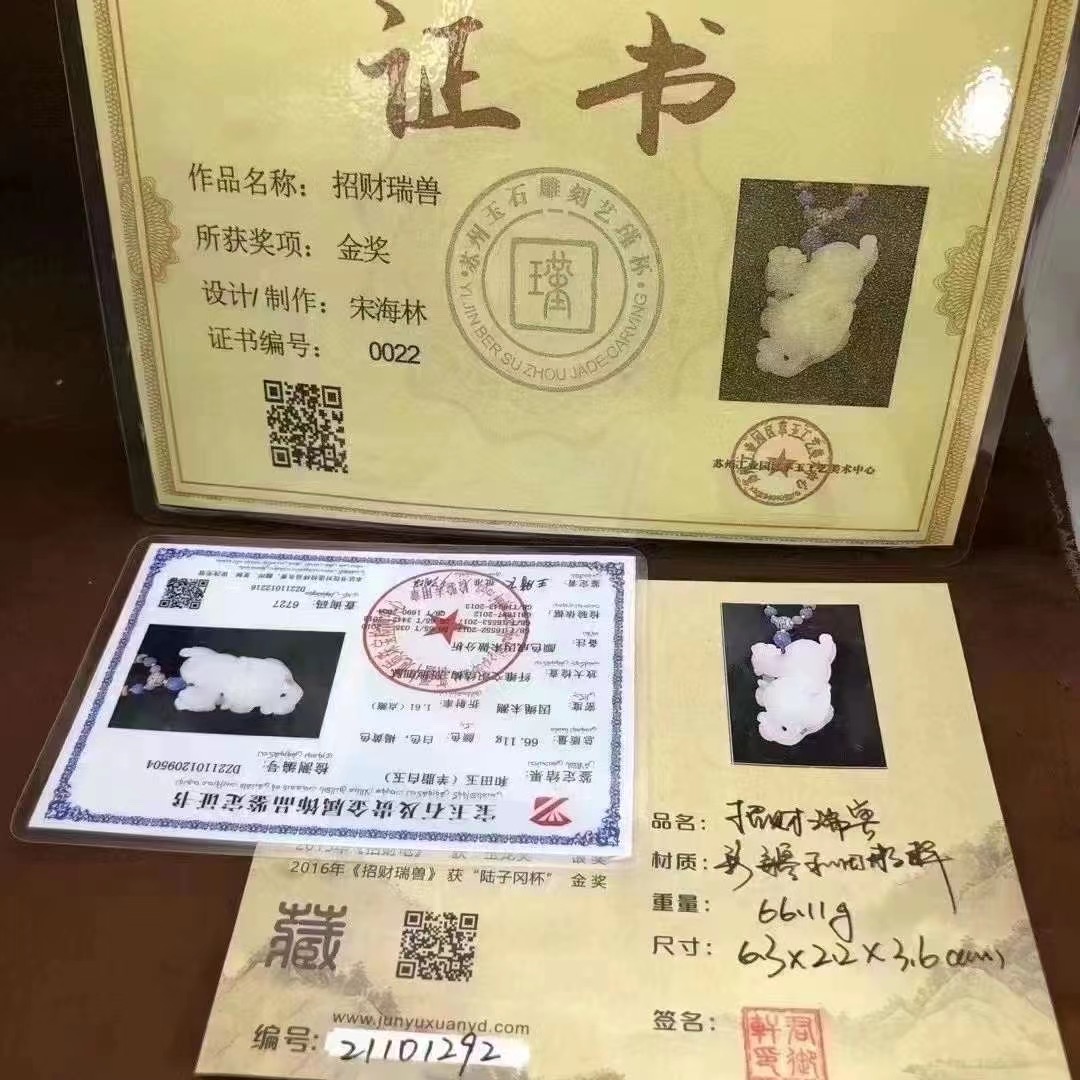 证书
作品名称：招财瑞兽
所获奖项：金奖
设计/制作：宋海林
证书编号：0022
苏州玉石雕刻艺瑾杯
YI JIN BEI SU ZHOU JADE CARVING
瑾
苏州工业园区
工艺美术中心
宝玉石及贵金属饰品鉴定证书
检测编号 DZ21101209504
鉴定结果：和田玉(羊脂白玉)
总质量 66.11g 颜色：白色，褐黄色
密度 因绳未测 折射率：1.61(点测)
放大检查：纤维交织结构
备注：颜色成因未做分析
检验依据：
鉴定者
查询码：6727
DZ211012216
2016年《招财瑞兽》获“陆子冈杯” 金奖
藏
www.junyuxuanyd.com
编号：21101292
品名：招财瑞兽
材质：新疆和田
重量：66.11g
尺寸：63×22×3.6(cm)
签名：